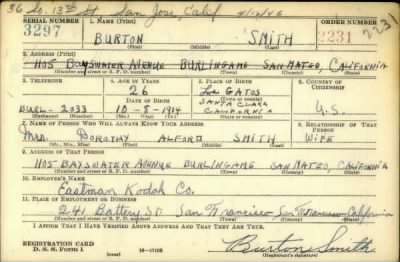 36 So. 13th St San Jose, Calif 4/12/46
SERIAL NUMBER 1. NAME (Print) ORDER NUMBER
3297 BURTON SMITH 2231 2231
(First) (Middle) (Last)
2. ADDRESS (Print)
1105 BAYSWATER AVENUE BURLINGAME SAN MATEO, CALIFORNIA
(Number and street or R. F. D. number) (Town) (County) (State)
3. TELEPHONE 4. AGE IN YEARS 5. PLACE OF BIRTH 6. COUNTRY OF CITIZENSHIP
26 LOS GATOS
DATE OF BIRTH SANTA CLARA
BURL-2033 10-8-1914 CALIFORNIA U.S.
(Exchange) (Number) (Mo.) (Day) (Yr.) (State or country)
7. NAME OF PERSON WHO WILL ALWAYS KNOW YOUR ADDRESS 8. RELATIONSHIP OF THAT PERSON
MRS. DOROTHY ALFORD SMITH WIFE
(Mr., Mrs., Miss) (First) (Middle) (Last)
9. ADDRESS OF THAT PERSON
1105 BAYSWATER AVENUE BURLINGAME SAN MATEO, CALIFORNIA
(Number and street or R. F. D. number) (Town) (County) (State)
10. EMPLOYER'S NAME
Eastman Kodak Co.
11. PLACE OF EMPLOYMENT OR BUSINESS
241 Battery St. San Francisco San Francisco California
(Number and street or R. F. D. number) (Town) (County) (State)
I AFFIRM THAT I HAVE VERIFIED ABOVE ANSWERS AND THAT THEY ARE TRUE.
REGISTRATION CARD
D. S. S. Form 1 (over) 16-17105 Burton Smith
(Registrant's signature)